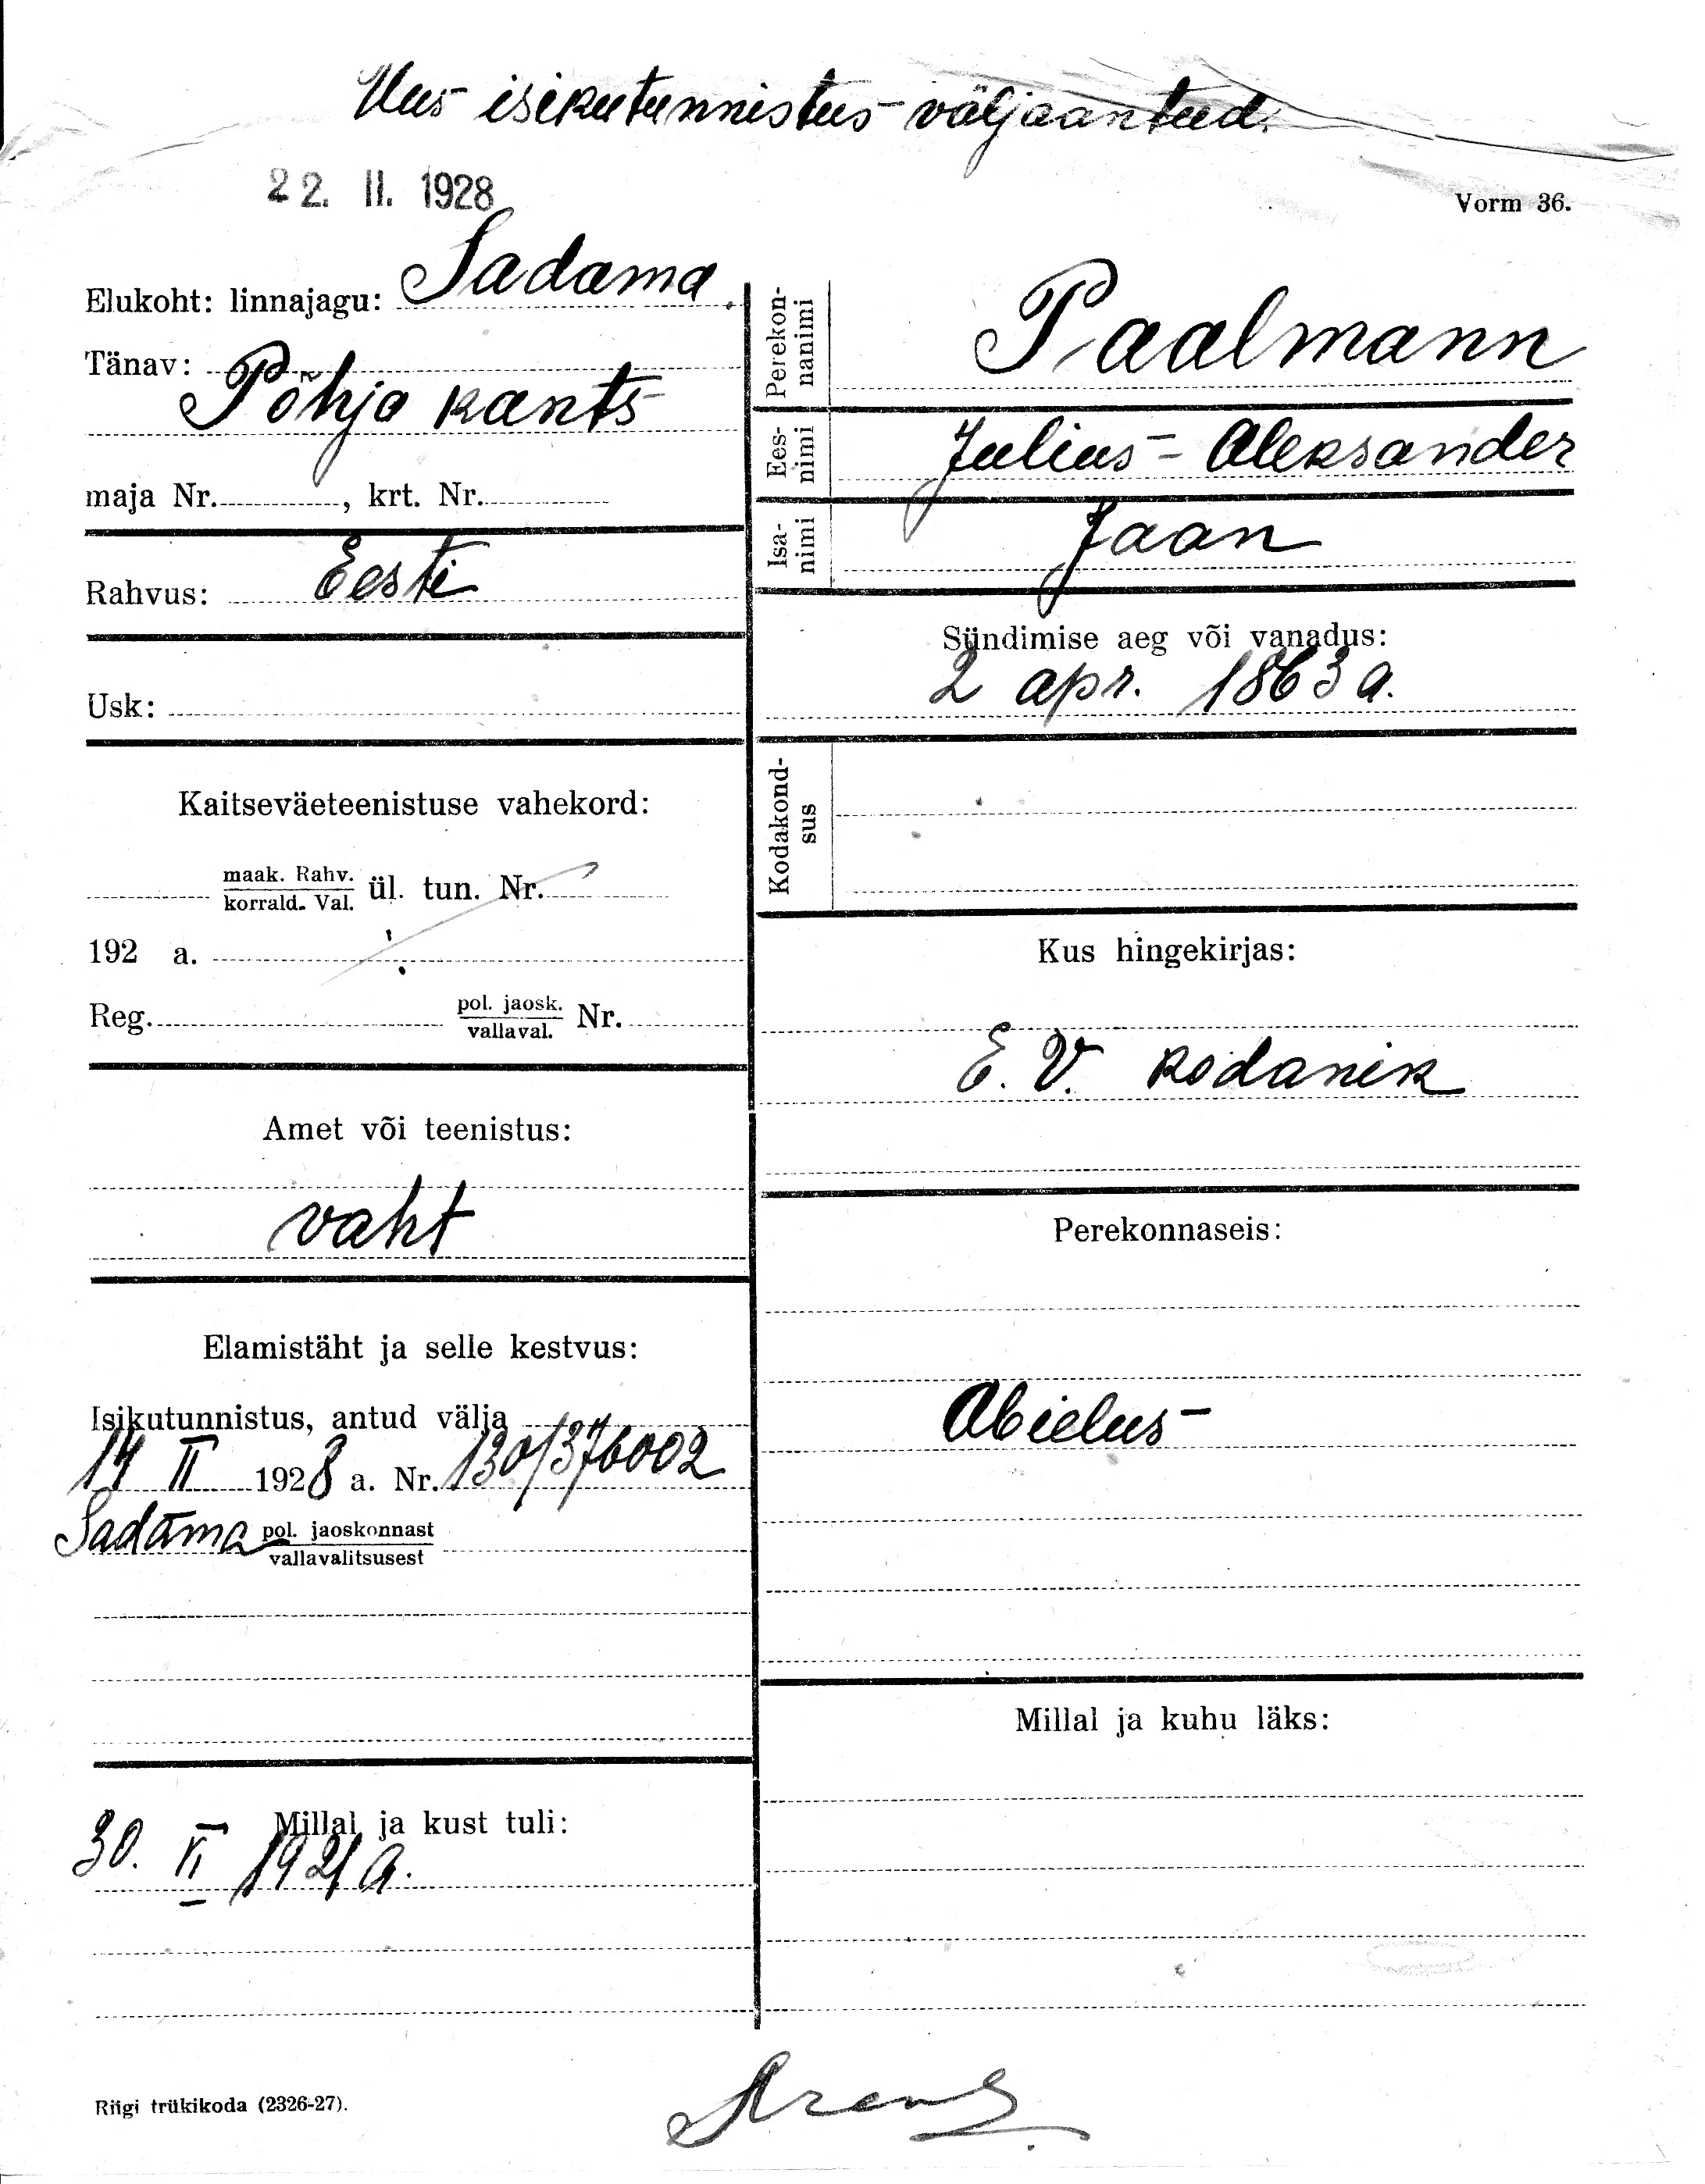 Uus isikutunnistus väljaantud.
22. II. 1928
Vorm 36.
Elukoht: linnajagu: Sadama.
Tänav:
Põhja kants
maja Nr. , krt. Nr.
Rahvus: Eesti
Usk:
Kaitseväeteenistuse vahekord:
maak. Rahv.
korrald. Val. ül. tun. Nr.
192 a.
Reg. pol. jaosk.
vallaval. Nr.
Amet või teenistus:
vaht
Elamistäht ja selle kestvus:
Isikutunnistus, antud välja
14 II 1928 a. Nr. 130/376002
Sadama pol. jaoskonnast
vallavalitsusest
Millal ja kust tuli:
30. VI 1921 a.
Perekon-
nanimi
Paalmann
Ees-
nimi
Julius-Aleksander
Isa-
nimi
Jaan
Sündimise aeg või vanadus:
2 apr. 1863 a.
Kodakond-
sus
Kus hingekirjas:
E. V. kodanik
Perekonnaseis:
Abielus
Millal ja kuhu läks:
Riigi trükikoda (2326-27).